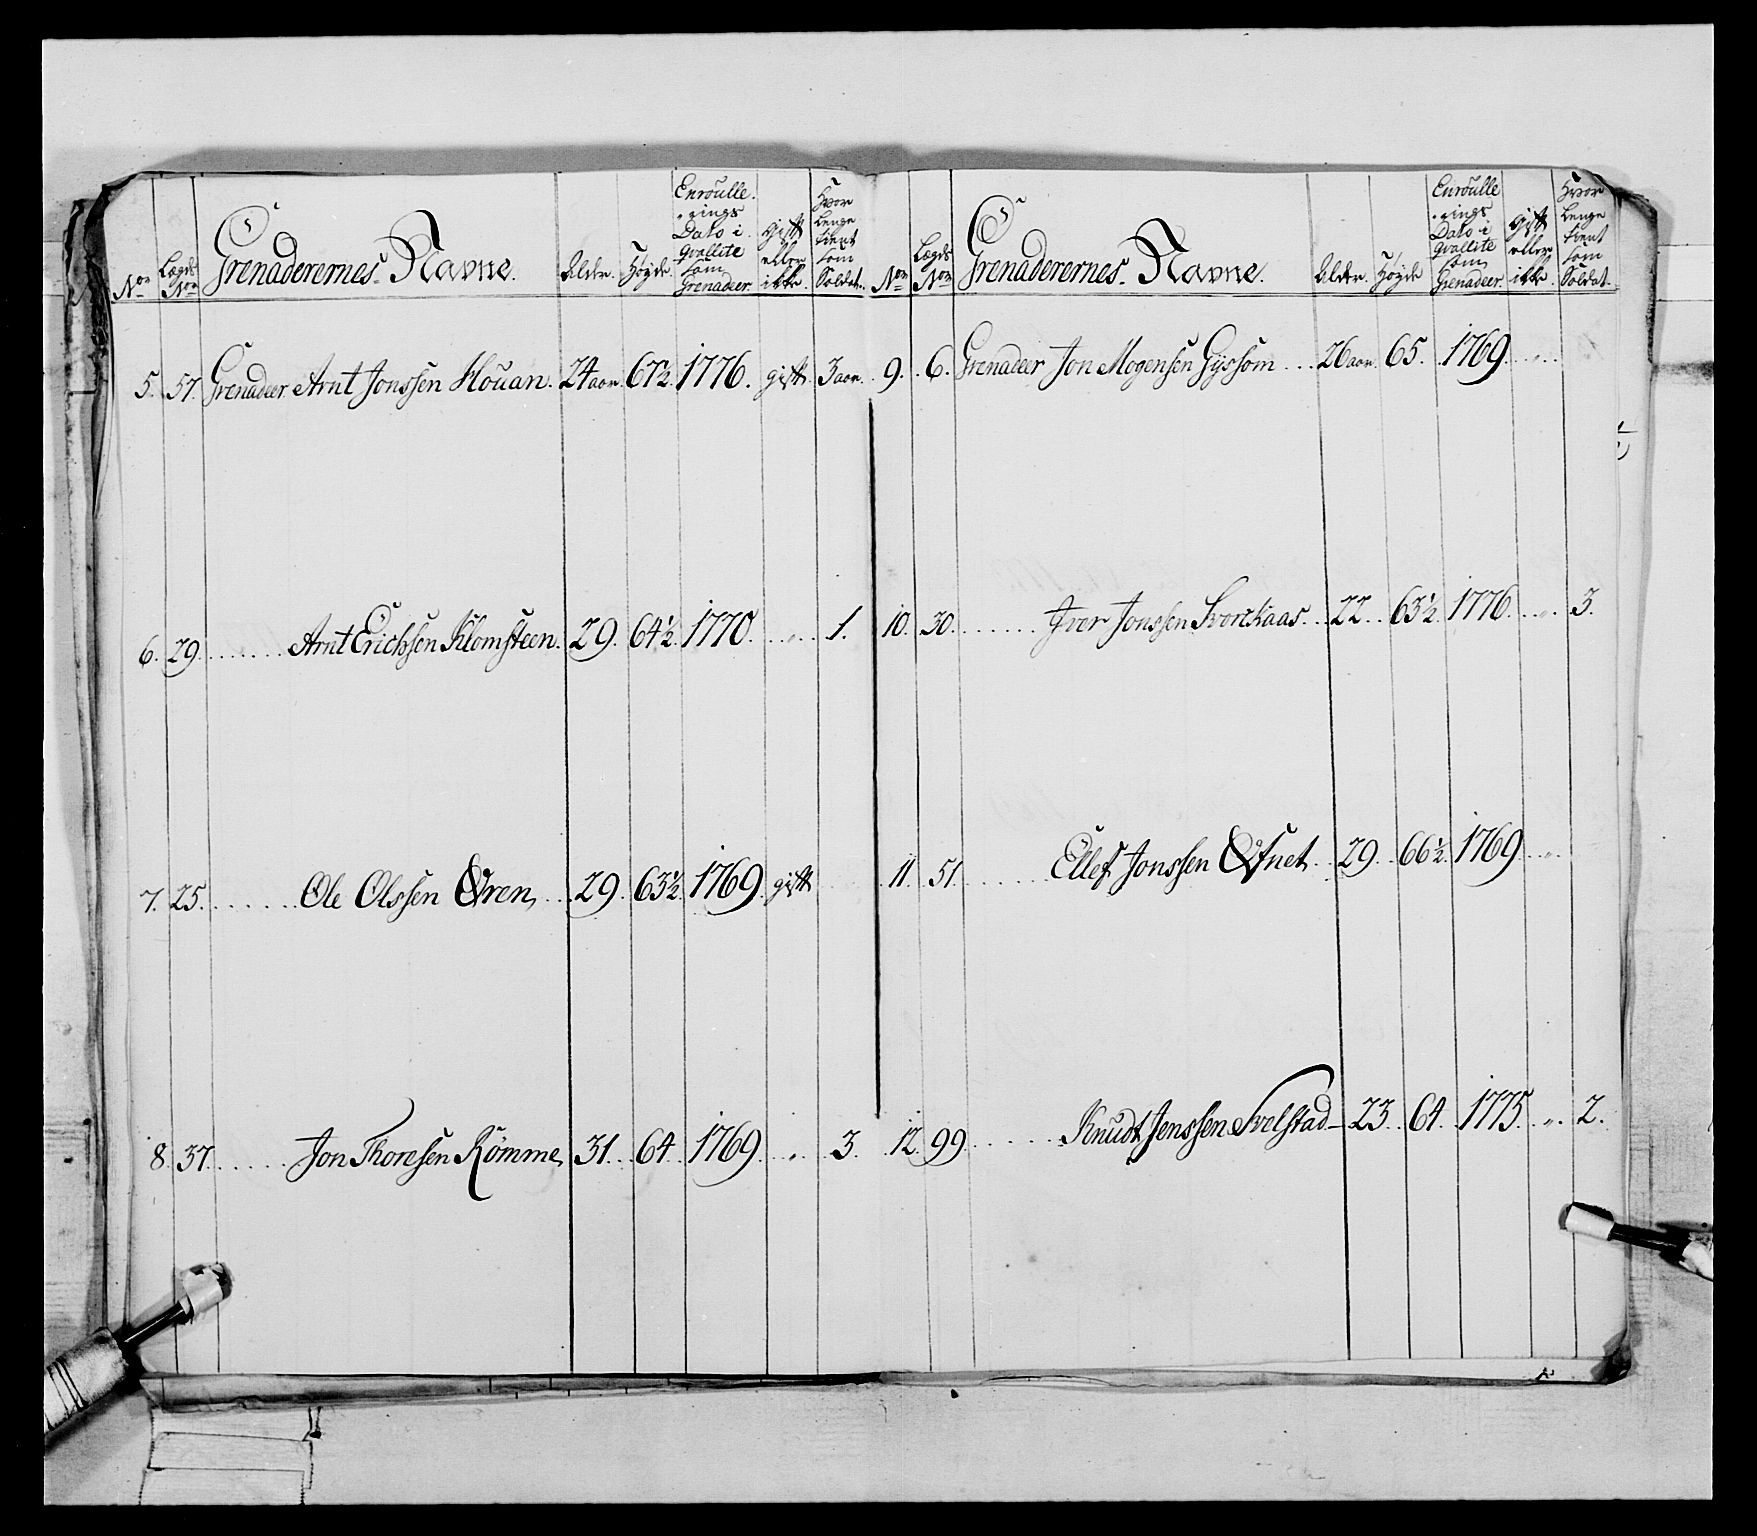 Nor
Lægds Nor
Grenaderernes Navne.
Alder.
Høyde
Enroulle.
rings
Dato i
Qvallite
som
Grenadeer.
Gift
eller
ikke.
Hvor
Lenge
tient
som
Soldat.
5. 57. Grenadeer Arnt Jonssen Houan. 24 aar. 67½. 1776. gift. 3 aar.
6. 29. Arnt Erichsen Klomsteen. 29. 64½. 1770. „ 1.
7. 25. Ole Olssen Øren, 29. 63½. 1769. gift
8. 37. Jon Thoresen Rømme, 31. 64. 1769. „ 3.
Nor
Lægds Nor
Grenaderernes Navne.
Alder.
Høyde
Enroulle
rings
Dato i
Qvallite
som
Grenadeer.
Gift
eller
ikke.
Hvor
Lenge
tient
som
Soldat.
9. 6. Grenadeer Jon Mogensen Gyssom 26 aar. 65. 1769. „
10. 30. Iver Jonssen Svorckaas. 22. 63½. 1776. „ 3.
11. 51. Ellef Jonssen Øfnet. 29. 66½. 1769. „
12. 99. Knudt Jenssen Svelstad 23. 64. 1775. „ 2.